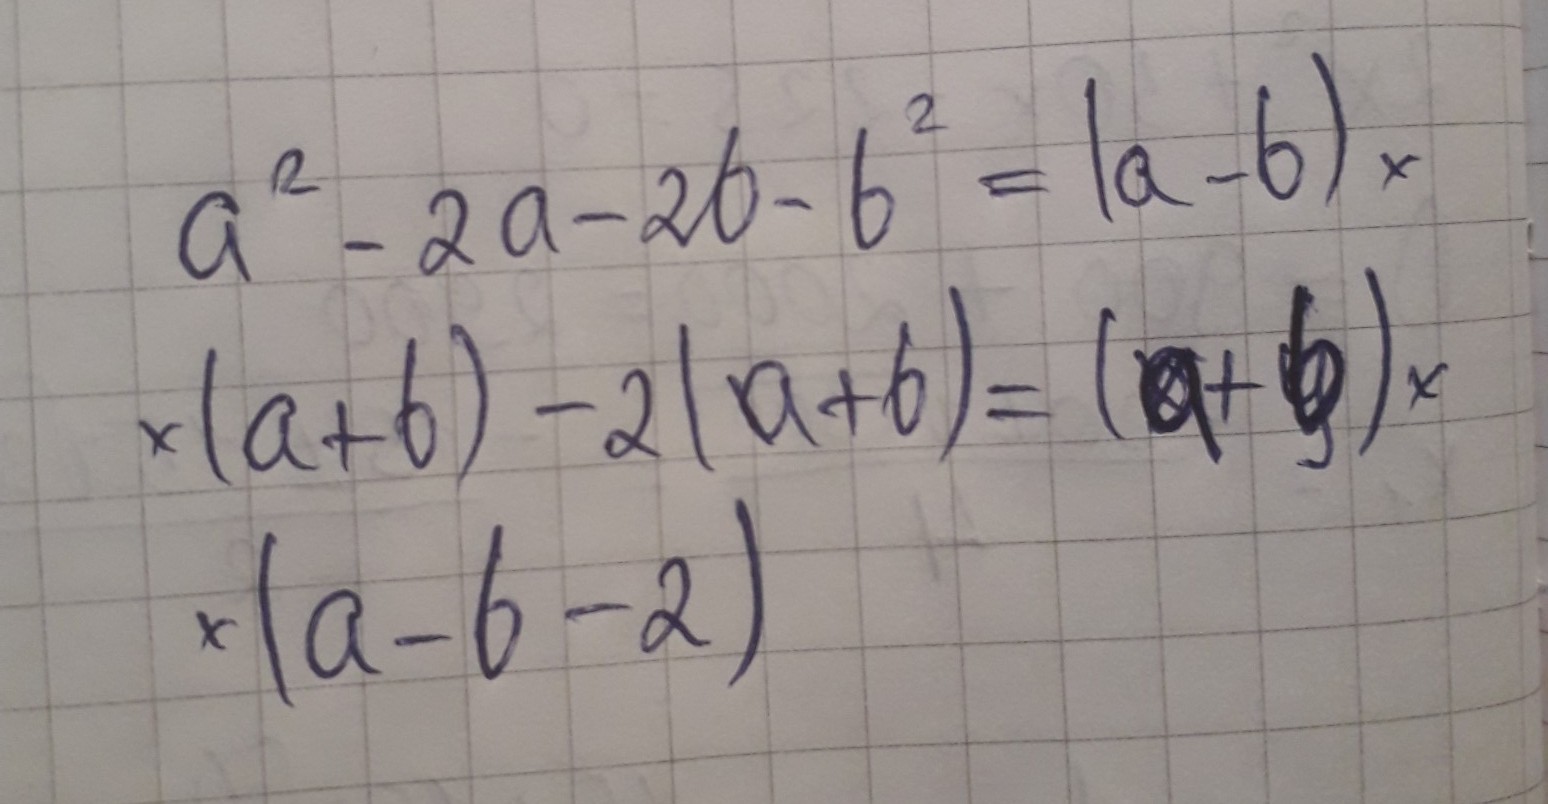 a² - 2a - 2b - b² = (a - b) ×
× (a + b) - 2(a + b) = (a + b) ×
× (a - b - 2)